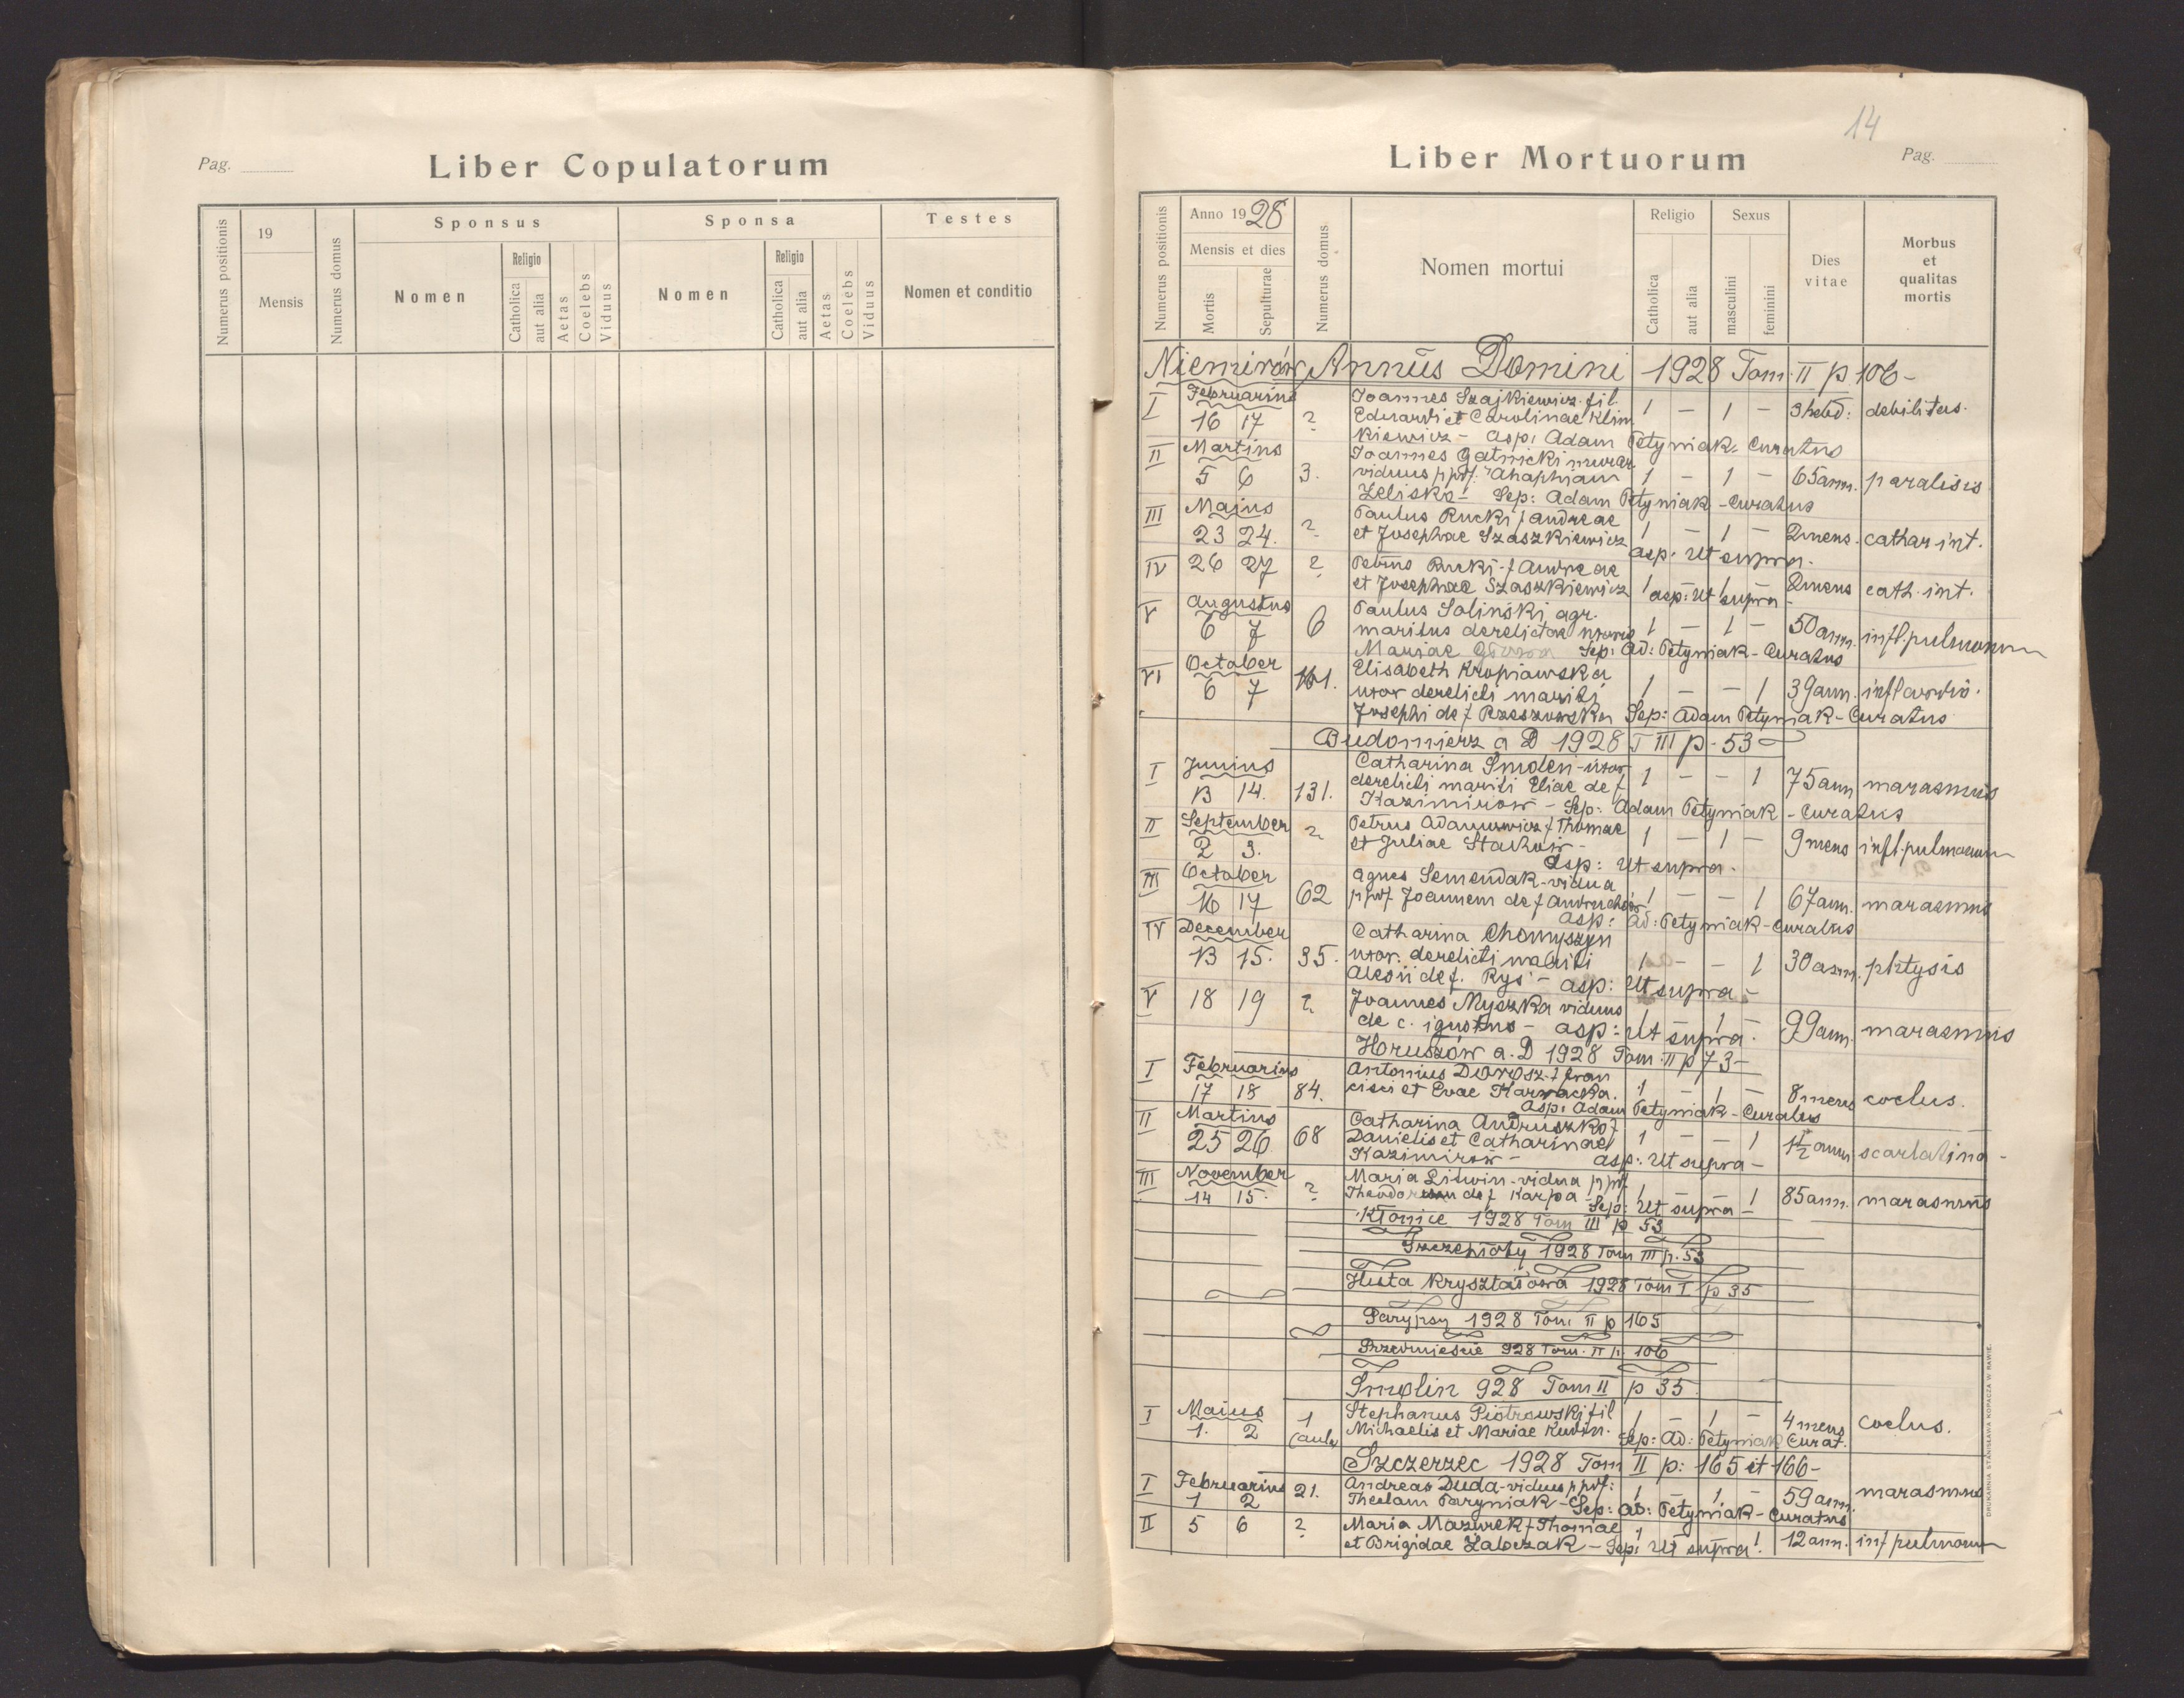 Pag.
Liber Copulatorum
Numerus positionis
19
Mensis
Numerus domus
Sponsus
Nomen
Religio
Catholica
aut alia
Aetas
Coelebs
Viduus
Sponsa
Nomen
Religio
Catholica
aut alia
Aetas
Coelebs
Viduus
Testes
Nomen et conditio
14
Liber Mortuorum
Pag.
Numerus positionis
Anno 1928
Mensis et dies
Mortis
Sepulturae
Numerus domus
Nomen mortui
Religio
Catholica
aut alia
Sexus
masculini
feminini
Dies vitae
Morbus et qualitas mortis
Niemirów Annus Domini 1928 Tom. II p 106-
I Februarius Joannes Szajkiewicz fil.
16 17 ? Eduardi et Carolinae Klim 1 - 1 - 3 hebd: debilitas.
kiewicz - asp: Adam Petyniak - Curatus
II Martius Joannes Gatnicki murar
5 6 3. viduus p prf. Anaphiam 1 - 1 - 65 ann. paralisis
Zelisko - Sep: Adam Petyniak - Curatus
III Majus Paulus Rucki f Andreae
23 24. ? et Josephae Szaszkiewicz 1 - 1 - 2 mens. cathar int.
asp: Ut supra.
IV 26 27 ? Petrus Rucki f Andreae
et Josephae Szaszkiewicz 1 asp: Ut supra - 2 mens cath. int.
V Augustus Paulus Soliński agr.
6 7 6 maritus derelictae uxoris 1 - 1 - 50 ann. infl. pulmonum
Mariae Sep: Ad: Petyniak - Curatus
VI October Elisabeth Kropiawska
6 7 161. uxor derelicti mariti 1 - - 1 39 ann.
Josephi de f Rzeszowska Sep: Adam Petyniak - Curatus
Budomierz a D 1928 T III p - 53
I Junius Catharina Smolen - uxor
13 14. 131. derelicti mariti Eliae de f 1 - - 1 75 ann marasmus
Kazimirow - Sep: Adam Petyniak - Curatus
II September ? Petrus Adamowicz f Thomae 1 - 1 - 9 mens infl. pulmonum
2 3. et Juliae Stachow -
asp: Ut supra.
III October Agnes Semendak - vidua
16 17 62 p prf Joannem de f Andruchów 1 - - 1 67 ann. marasmus
asp: Ad: Petyniak - Curatus
IV December Catharina Chomyszyn
13 15. 35. uxor derelicti mariti 1 - - 1 30 ann. phtysis
Alexii de f. Ryś - asp: Ut supra -
V 18 19 ? Joannes Myszka viduus
de c. ignotus - asp: Ut supra. 99 ann. marasmus
Hruszów a. D 1928 Tom. II p 73 -
I Februarius Antonius Dorosz f Fran
17 18 84. cisci et Evae Karwacka. 1 - 1 - 8 mens coclus.
asp: Adam Petyniak - Curatus
II Martius Catharina Andruszko f
25 26 68 Danielis et Catharinae 1 - - 1 1 1/2 ann scarlatina -
Kazimirow - asp: Ut supra -
III November Maria Litwin - vidua p prf
14 15. ? Theodorum de f Karpa - Sep: Ut supra - 1 85 ann. marasmus
Kłonice 1928 Tom III p 53
Szczepłoty 1928 Tom III p. 53
Huta Kryształowa 1928 Tom I p 35
Parypsy 1928 Tom II p 165
Przedmieście 928 Tom. II p. 106
Smolin 928 Tom II p 35
I Maius 1 Stephanus Piotrowski fil 1 - 1 - 4 mens coclus.
1. 2 Michaelis et Mariae Sep: Ad: Petyniak Curat.
Szczerzec 1928 Tom II p: 165 et 166 -
I Februarius 21. Andreas Duda - viduus p prf: 1 - 1 - 59 ann. marasmus
1 2 Theclam Paryniak - Sep: Ad: Petyniak - Curatus
II 5 6 ? Maria Mazurek f Thomae 1
et Brigidae Żabczak - Sep: Ut supra! 12 ann. inf pulmonum
DRUKARNIA STANISŁAWA KOPACZA W RAWIE.